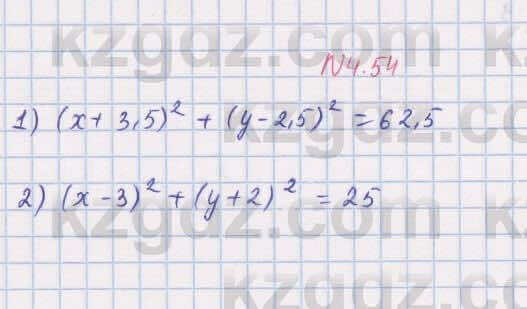 kzgdz.com
N4.54
1) (x+ 3,5)² + (y-2,5)² = 62,5
2) (x-3)² + (y+2)² = 25
kzgdz.com